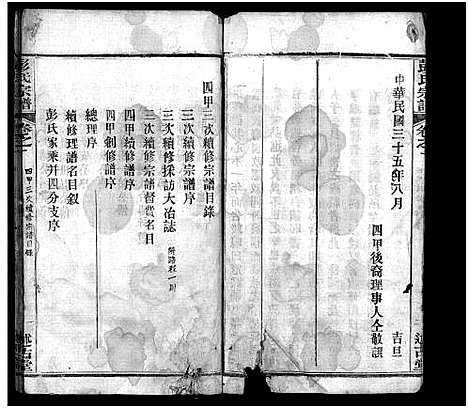 彭氏宗譜
卷之一
中華民國三十五年八月
吉旦
四甲後裔理事人仝敬譔
述古堂
四甲三次續修宗譜目錄
三次續修採訪大冶誌 附路程一則
三次續修宗譜督費名目
四甲續修譜序
四甲創修譜序
總理序
續修理譜名目敘
彭氏家乘并四分支序
彭氏宗譜
卷之一
四甲三次續修宗譜目錄
述古堂